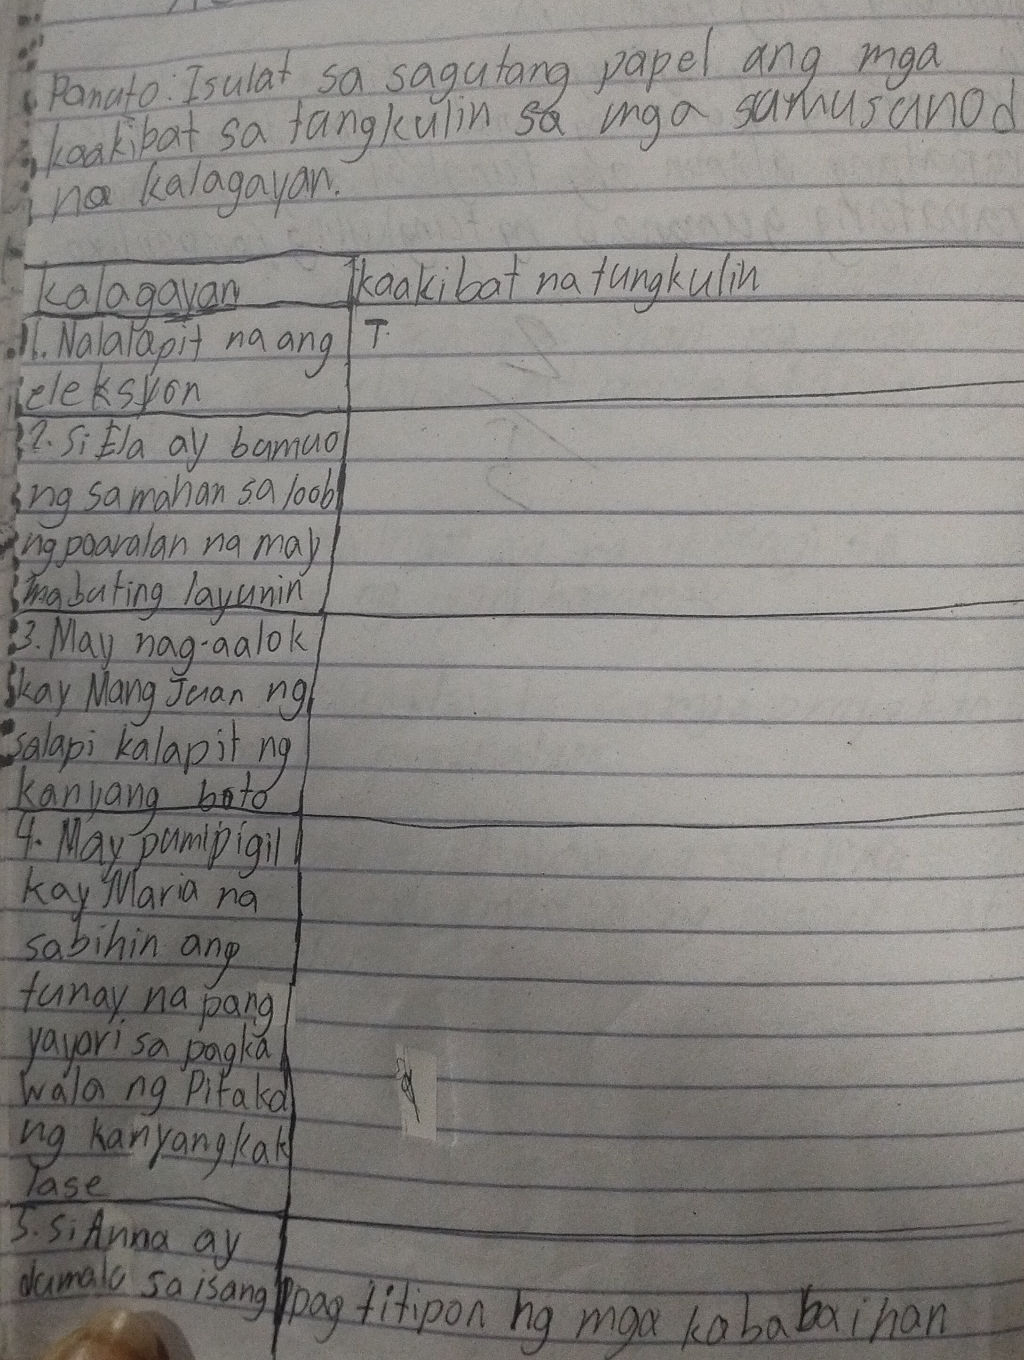 Panuto: Isulat sa sagutang papel ang mga
kaakibat sa tangkulin sa mga sumusunod
na kalagayan.
kalagayan
kaakibat na tungkulin
1. Nalalapit na ang
eleksyon
T.
2. Si Ela ay bumuo
ng samahan sa loob
ng paaralan na may
mabuting layunin
3. May nag-aalok
kay Mang Juan ng
salapi kalapit ng
kanyang boto
4. May pumipigil
kay Maria na
sabihin ang
tunay na pang
yayari sa pagka
wala ng Pitaka
ng kanyang kak
lase
5. Si Anna ay
dumalo sa isang pag titipon ng mga kababaihan